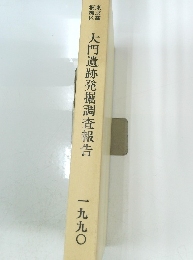 大門遺跡発掘調査報告
一九九〇